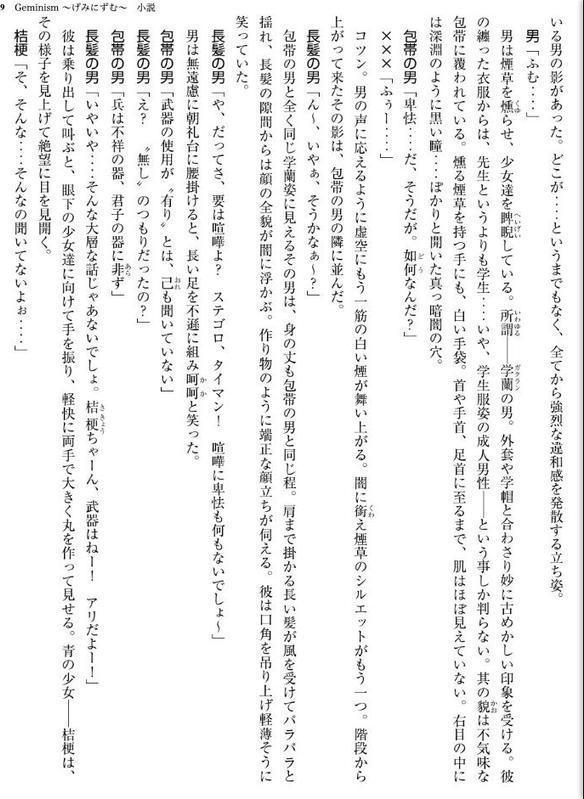 9 Geminism ～げみにずむ～ 小説
いる男の影があった。どこが‥‥というまでもなく、全てから強烈な違和感を発散する立ち姿。
男「ふむ‥‥」
男は煙草を燻らせ、少女達を睥睨している。所謂――学蘭の男。外套や学帽と合わさり妙に古めかしい印象を受ける。彼
の纏った衣服からは、先生というよりも学生‥‥いや、学生服姿の成人男性――という事しか判らない。其の貌は不気味な
包帯に覆われている。燻る煙草を持つ手にも、白い手袋。首や手首、足首に至るまで、肌はほぼ見えていない。右目の中に
は深淵のように黒い瞳‥‥ぽかりと開いた真っ暗闇の穴。
包帯の男「卑怯‥‥だ、そうだが。如何なんだ?」
×××「ふぅー‥‥」
コツン。男の声に応えるように虚空にもう一筋の白い煙が舞い上がる。闇に銜え煙草のシルエットがもう一つ。階段から
上がって来たその影は、包帯の男の隣に並んだ。
長髪の男「ん～、いやぁ、そうかなぁ～?」
包帯の男と全く同じ学蘭姿に見えるその男は、身の丈も包帯の男と同じ程。肩まで掛かる長い髪が風を受けてバラバラと
揺れ、長髪の隙間からは顔の全貌が闇に浮かぶ。作り物のように端正な顔立ちが伺える。彼は口角を吊り上げ軽薄そうに
笑っていた。
長髪の男「や、だってさ、要は喧嘩よ? ステゴロ、タイマン! 喧嘩に卑怯も何もないでしょ～」
男は無遠慮に朝礼台に腰掛けると、長い足を不遜に組み呵呵と笑った。
包帯の男「武器の使用が〝有り〟とは、己も聞いていない」
長髪の男「え? 〝無し〟のつもりだったの?」
包帯の男「兵は不祥の器、君子の器に非ず」
長髪の男「いやいや‥‥そんな大層な話じゃあないでしょ。桔梗ちゃーん、武器はねー! アリだよー!」
彼は乗り出して叫ぶと、眼下の少女達に向けて手を振り、軽快に両手で大きく丸を作って見せる。青の少女――桔梗は、
その様子を見上げて絶望に目を見開く。
桔梗「そ、そんな‥‥そんなの聞いてないよぉ‥‥」